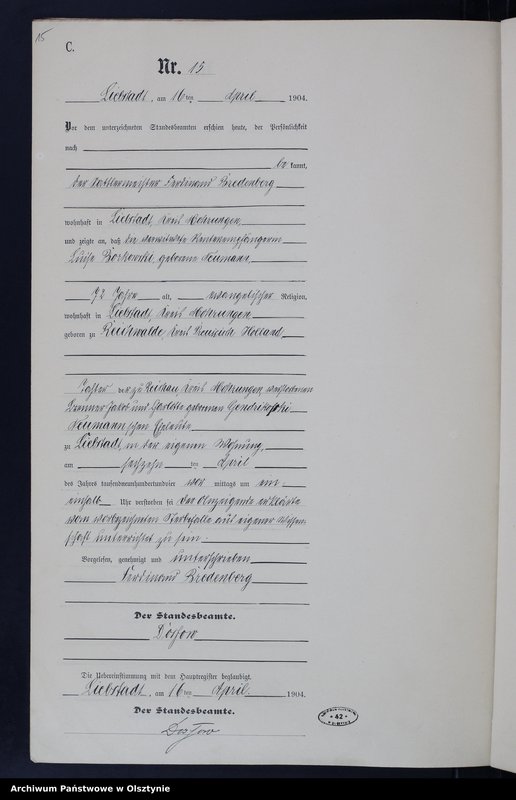 15
C.
Nr. 15
Liebstadt, am 16ten April 1904.
Vor dem unterzeichneten Standesbeamten erschien heute, der Persönlichkeit
nach
be kannt,
der Sattlermeister Ferdinand Bredenberg
wohnhaft in Liebstadt, Kreis Mohrungen,
und zeigte an, daß die verwitwete Rentenempfängerin
Luise Borkowski, geborene Neumann,
72 Jahre alt, evangelischer Religion,
wohnhaft in Liebstadt, Kreis Mohrungen
geboren zu Reichwalde, Kreis Preußisch Holland,
Tochter der zu Kreis Mohrungen, verstorbenen
Jakob und Charlotte geborenen
Neumannschen Eheleute
zu Liebstadt, in der eigenen Wohnung,
am sechzehn ten April
des Jahres tausendneunhundertundvier vor mittags um ein
einhalb Uhr verstorben sei. Der Anzeigende erklärte
vom vorbezeichneten Sterbefalle aus eigener Wissen-
schaft unterrichtet zu sein.
Vorgelesen, genehmigt und unterschrieben
Ferdinand Bredenberg
Der Standesbeamte.
Die Uebereinstimmung mit dem Hauptregister beglaubigt.
Liebstadt, am 16ten April 1904.
Der Standesbeamte.
42
Archiwum Państwowe w Olsztynie